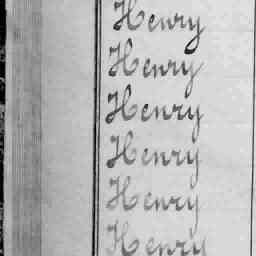 Henry
Henry
Henry
Henry
Henry
Henry